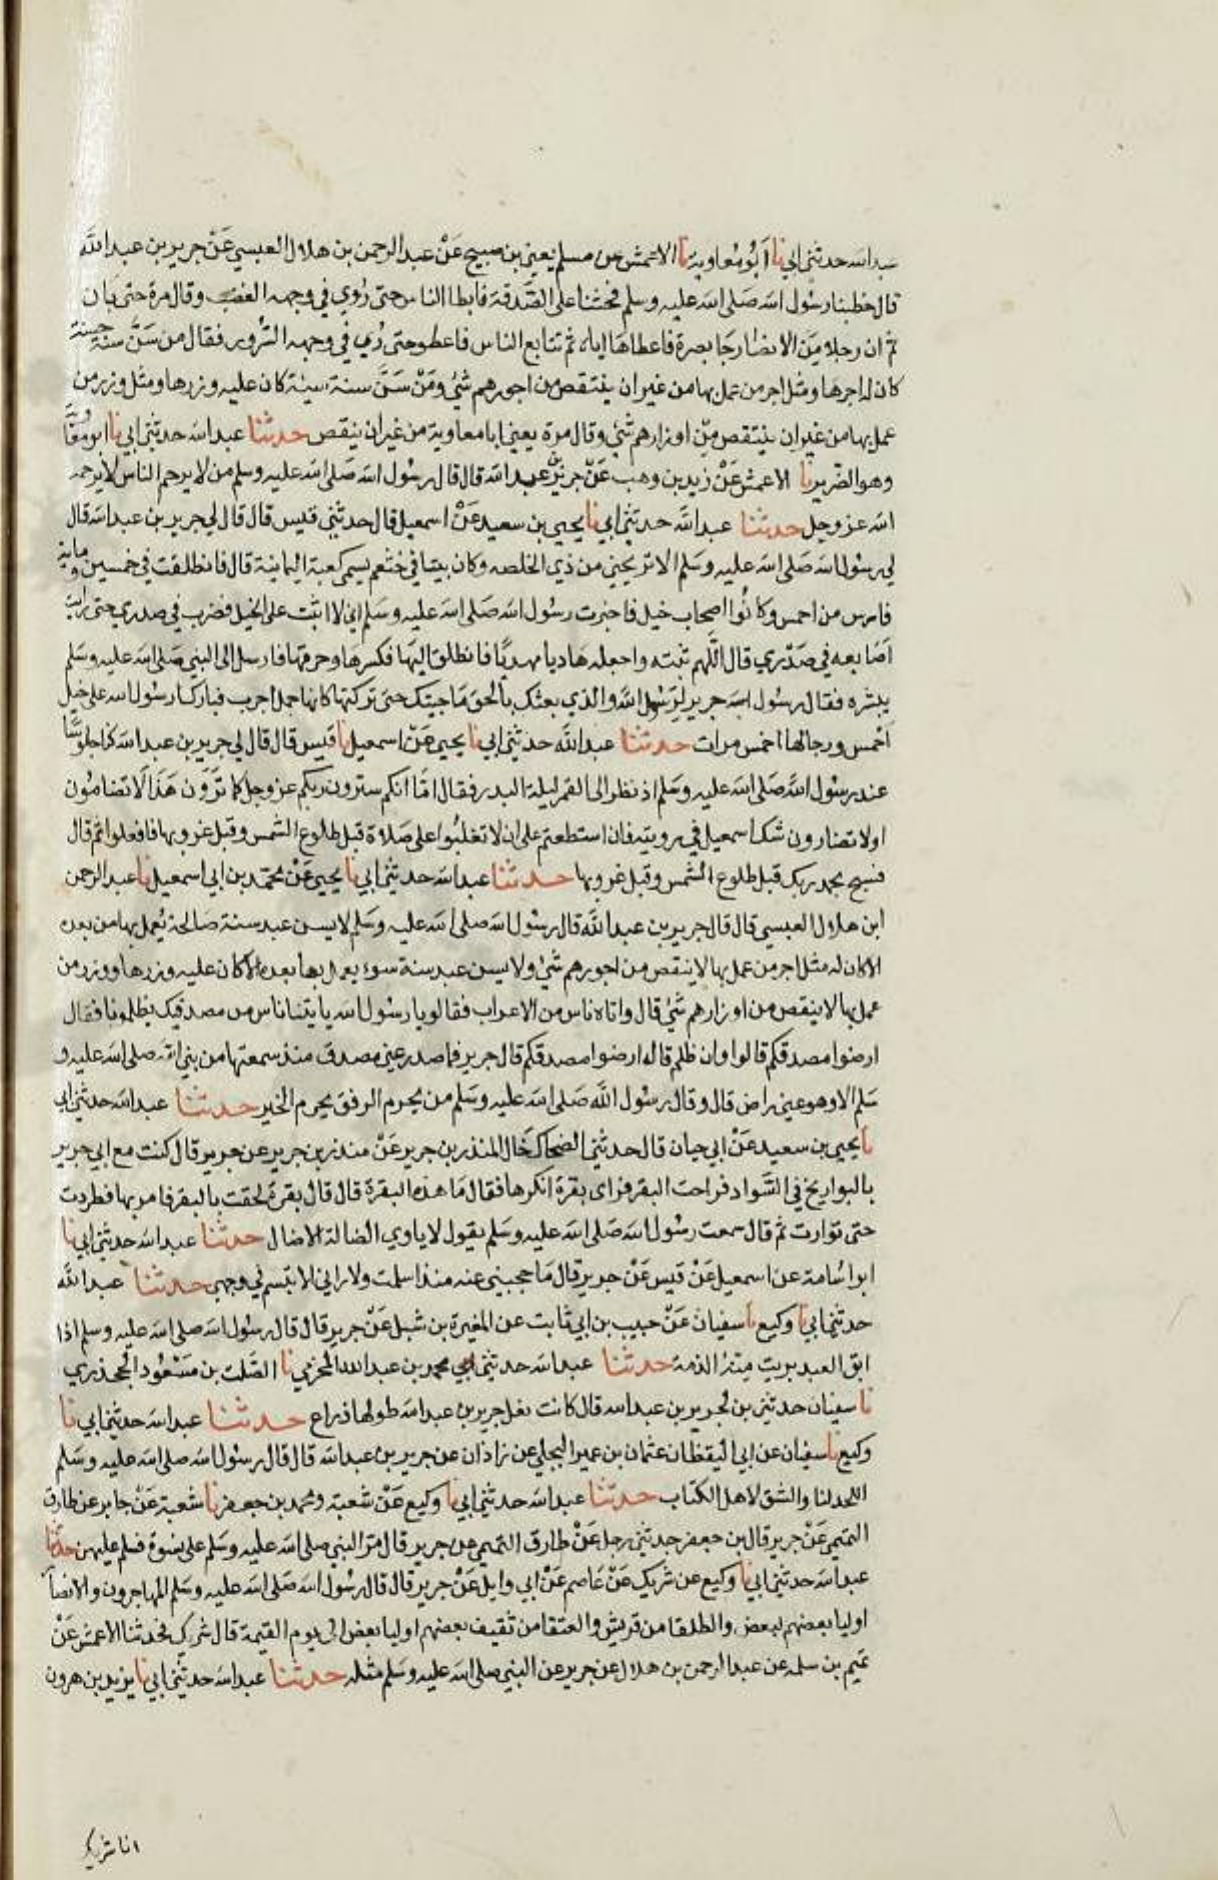 عبدالله حدثني ابي نا ابو معاوية نا الاعمش عن مسلم يعني بن صبيح عن عبد الرحمن بن هلال العبسي عن جرير بن عبد الله
قال خطبنا رسول الله صلى الله عليه وسلم فحثنا على الصدقة فابطا الناس حتى رؤي في وجهه الغضب وقال مرة حتى بان
ثم ان رجلا من الانصار جا بصرة فاعطاها اياه ثم تتابع الناس فاعطوحتى رؤي في وجهه السرور فقال من سن سنة حسنة
كان له اجرها ومثل اجر من عمل بها من غير ان ينتقص من اجورهم شئ ومن سن سنة سيئة كان عليه وزرها ومثل وزر من
عمل بها من غير ان ينتقص من اوزارهم شئ وقال مرة يعني ابا معاوية من غير ان ينقص حدثنا عبد الله حدثني ابي نا ابو معاوية
وهو الضرير نا الاعمش عن زيد بن وهب عن جرير بن عبد الله قال قال رسول الله صلى الله عليه وسلم من لا يرحم الناس لا يرحمه
الله عز وجل حدثنا عبد الله حدثني ابي نا يحيى بن سعيد عن اسمعيل قال حدثني قيس قال قال لي جرير بن عبد الله قال
لي رسول الله صلى الله عليه وسلم الا تريحني من ذي الخلصه وكان بيتا في خثعم يسمى كعبة اليمانية قال فانطلقت في خمسين وماية
فارس من احمس وكانوا اصحاب خيل فاخبرت رسول الله صلى الله عليه وسلم اني لا اثبت على الخيل فضرب في صدري حتى رايت
اصابعه في صدري قال اللهم ثبته واجعله هاديا مهديا فانطلق اليها فكسرها وحرقها فارسل الى النبي صلى الله عليه وسلم
يبشره فقال رسول جرير لرسول الله والذي بعثك بالحق ما جيتك حتى تركتها كانها جمل اجرب فبارك رسول الله على خيل
احمس ورجالها خمس مرات حدثنا عبد الله حدثني ابي نا يحيى عن اسمعيل نا قيس قال قال لي جرير بن عبد الله كنا جلوسا
عند رسول الله صلى الله عليه وسلم اذ نظر الى القمر ليلة البدر فقال اما انكم سترون ربكم عز وجل كما ترون هذا لا تضامون
او لا تضارون شك اسمعيل في رويته فان استطعتم على ان لا تغلبوا على صلاة قبل طلوع الشمس وقبل غروبها فافعلوا ثم قال
فسبح بحمد ربك قبل طلوع الشمس وقبل غروبها حدثنا عبد الله حدثني ابي نا يحيى عن محمد بن ابي اسمعيل نا عبد الرحمن
ابن هلال العبسي قال قال جرير بن عبد الله قال رسول الله صلى الله عليه وسلم لا يسن عبد سنة صالحة يعمل بها من بعده
الا كان له مثل اجر من عمل بها لا ينقص من اجورهم شئ ولا يسن عبد سنة سوء يعمل بها بعده الا كان عليه وزرها ووزر من
عمل بها لا ينقص من اوزارهم شئ قال واتاه ناس من الاعراب فقالو يا رسول الله ياتينا ناس من مصدقيك يظلمونا فقال
ارضوا مصدقكم قالوا وان ظلم قال ارضوا مصدقكم قال جرير فما صدر عني مصدق منذ سمعتها من نبي الله صلى الله عليه و
سلم الا وهو عني راض قال وقال رسول الله صلى الله عليه وسلم من يحرم الرفق يحرم الخير حدثنا عبد الله حدثني ابي
نا يحيى بن سعيد عن ابي حيان قال حدثني الضحاك خال المنذر بن جرير عن منذر بن جرير عن جرير قال كنت مع ابي جرير
بالبوازيج في السواد فراحت البقر فراى بقرة انكرها فقال ما هذه البقرة قال قال بقرة لحقت بالبقر فامر بها فطردت
حتى توارت ثم قال سمعت رسول الله صلى الله عليه وسلم يقول لا ياوي الضالة الا ضال حدثنا عبد الله حدثني ابي نا
ابو اسامة عن اسمعيل عن قيس عن جرير قال ما حجبني عنه منذ اسلمت ولا راني الا تبسم في وجهي حدثنا عبد الله
حدثني ابي نا وكيع نا سفيان عن حبيب بن ابي ثابت عن المغيرة بن شبل عن جرير قال قال رسول الله صلى الله عليه وسلم اذا
ابق العبد بريت منه الذمة حدثنا عبد الله حدثني ابي محمد بن عبد الله المخرمي نا الصلت بن مسعود الجحدري
نا سفيان حدثني بن لجرير بن عبد الله قال كانت نعل جرير بن عبد الله طولها ذراع حدثنا عبد الله حدثني ابي نا
وكيع نا سفيان عن ابي اليقظان عثمان بن عمير البجلي عن زاذان عن جرير بن عبد الله قال قال رسول الله صلى الله عليه وسلم
اللحد لنا والشق لاهل الكتاب حدثنا عبد الله حدثني ابي نا وكيع عن شعبة ومحمد بن جعفر نا شعبة عن جابر عن طارق
التميمي عن جرير قال بن جعفر حدثني رجل عن طارق التميمي عن جرير قال مر النبي صلى الله عليه وسلم على نسوة فسلم عليهن حدثنا
عبد الله حدثني ابي نا وكيع عن شريك عن عاصم عن ابي وايل عن جرير قال قال رسول الله صلى الله عليه وسلم المهاجرون والانصار
اوليا بعضهم لبعض والطلقا من قريش والعتقا من ثقيف بعضهم اوليا بعض الى يوم القيمة قال شريك فحدثنا الاعمش عن
تميم بن سلمه عن عبد الرحمن بن هلال عن جرير عن النبي صلى الله عليه وسلم مثله حدثنا عبد الله حدثني ابي نا يزيد بن هرون
انا شريك